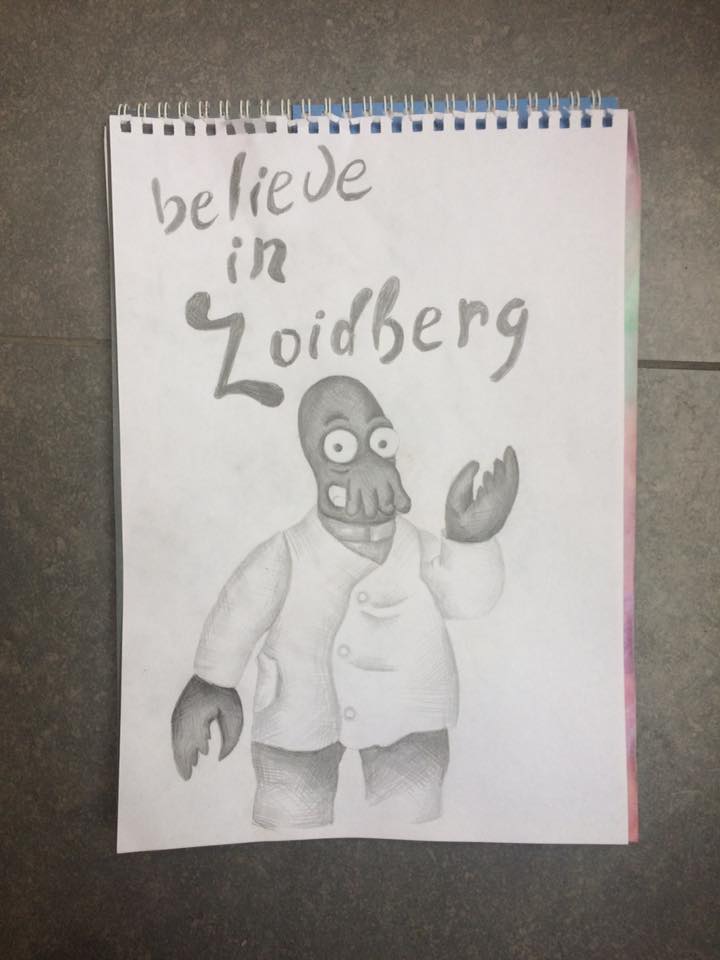 believe
in
Zoidberg